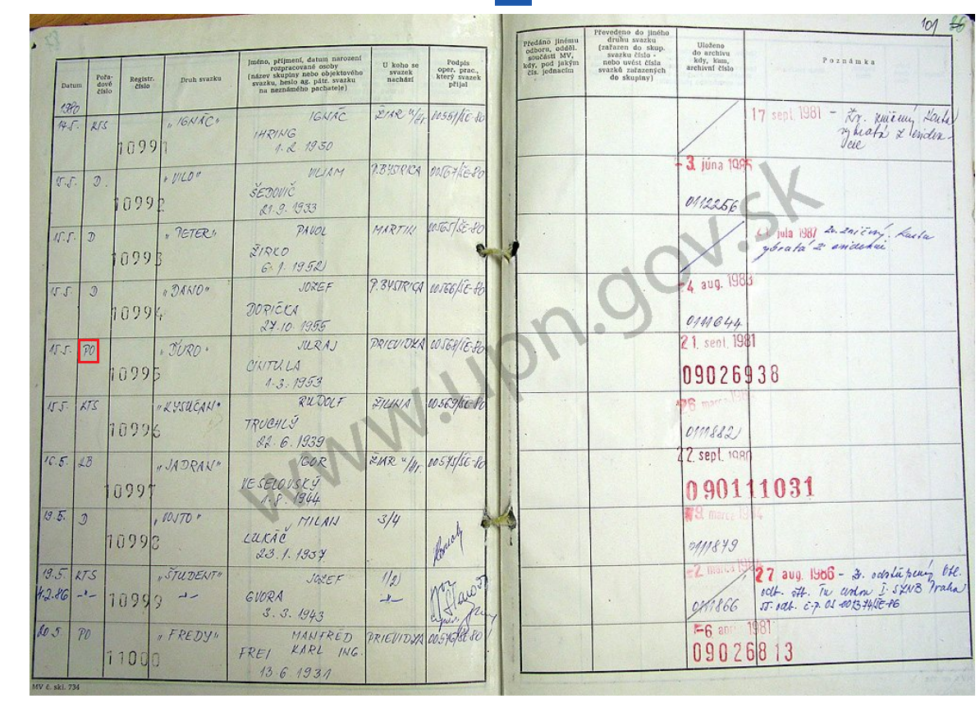 101 86
Datum
Pořa-
dové
číslo
Registr.
číslo
Druh svazku
Jméno, příjmení, datum narození
rozpracované osoby
(název skupiny nebo objektového
svazku, heslo ag. pátr. svazku
na neznámého pachatele)
U koho se
svazek
nachází
Podpis
oper. prac.,
který svazek
přijal
Předáno jinému
odboru, odděl.
součásti MV,
kdy, pod jakým
čís. jednacím
Převedeno do jiného
druhu svazku
(zařazen do skup.
svazku číslo -
nebo uvést čísla
svazků zařazených
do skupiny)
Uloženo
do archivu
kdy, kam,
archivní číslo
Poznámka
1980
14.5. KTS 10991 "IGNÁC" IGNÁC ŽIAR n/Hr. 00561/ŠE-80
IHRING
1.2.1930
17 sept. 1981 - Zv. zničený karta
vybratá z eviden-
cie
15.5. D. 10992 "VILO" VILIAM P.BYSTRICA 00564/ŠE-80
ŠEDOVIČ
21.9.1933
-3. júna 1985
0112256
15.5. D 10993 "PETER" PAVOL MARTIN 00565/ŠE-80
ŽIRKO
6.1.1952
júla 1987 Zv. zničený. karta
vybratá z evidencie
15.5. D 10994 "DANO" JOZEF P.BYSTRICA 00566/ŠE-80
DORIČKA
27.10.1955
-4 aug. 1983
0111644
15.5. PO 10995 "ĎURO" JURAJ PRIEVIDZA 00568/ŠE-80
CINTULA
1.3.1953
21. sept. 1981
09026938
15.5. KTS 10996 "KYSUČAN" RUDOLF ŽILINA 00569/ŠE-80
TRUCHLÝ
22.6.1939
0111882
16.5. KB 10997 "JADRAN" IGOR ŽIAR n/Hr. 00575/ŠE-80
VESELOVSKÝ
1.8.1944
22 sept. 1980
090111031
19.5. D 10998 "VOJTO" MILAN 3/4
LUKÁČ
23.1.1937
0111879
19.5. KTS 10999 "ŠTUDENT" JOZEF 1/2
4.2.86 -"- -"- GVORA -"-
3.3.1943
-2. marca
0111866
27 aug. 1986 - Zv. odstúpený
Praha
20.5 PO 11000 "FREDY" MANFRÉD PRIEVIDZA
FREI KARL ING.
13.6 1931
-6 1981
09026813
MV č. skl. 734
www.upn.gov.sk